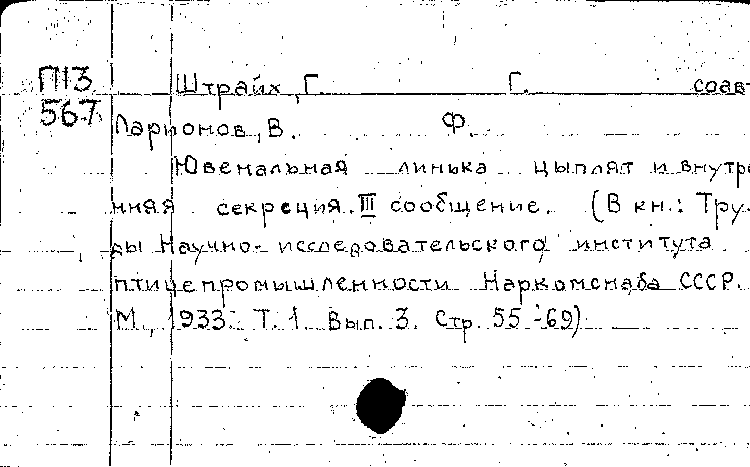 П13 Штрайх, Г. Г. соавт
567 Ларионов, В. Ф.
Ювенальная линька цыплят и внутре-
нняя секреция. III сообщение. (В кн.: Тру-
ды Научно-исследовательского института
птицепромышленности Наркомснаба СССР.
М., 1933. Т. 1. Вып. 3. Стр. 55-69)